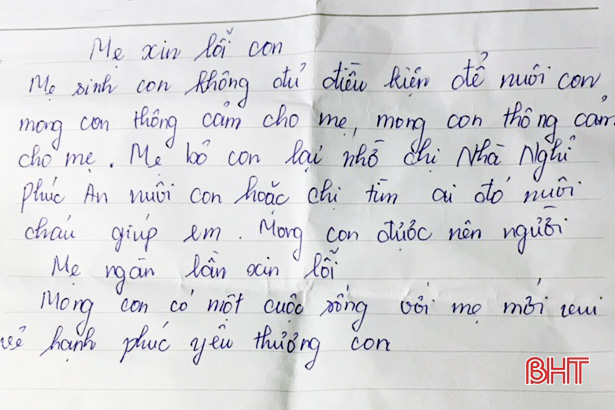 Mẹ xin lỗi con
Mẹ sinh con không đủ điều kiện để nuôi con
mong con thông cảm cho mẹ, mong con thông cảm
cho mẹ. Mẹ bỏ con lại nhờ chị Nhà Nghỉ
phúc An nuôi con hoặc chị tìm ai đó nuôi
cháu giúp em. Mong con được nên người
Mẹ ngàn lần xin lỗi
Mong con có một cuộc sống với mẹ mới vui
vẻ hạnh phúc yêu thương con
BHT